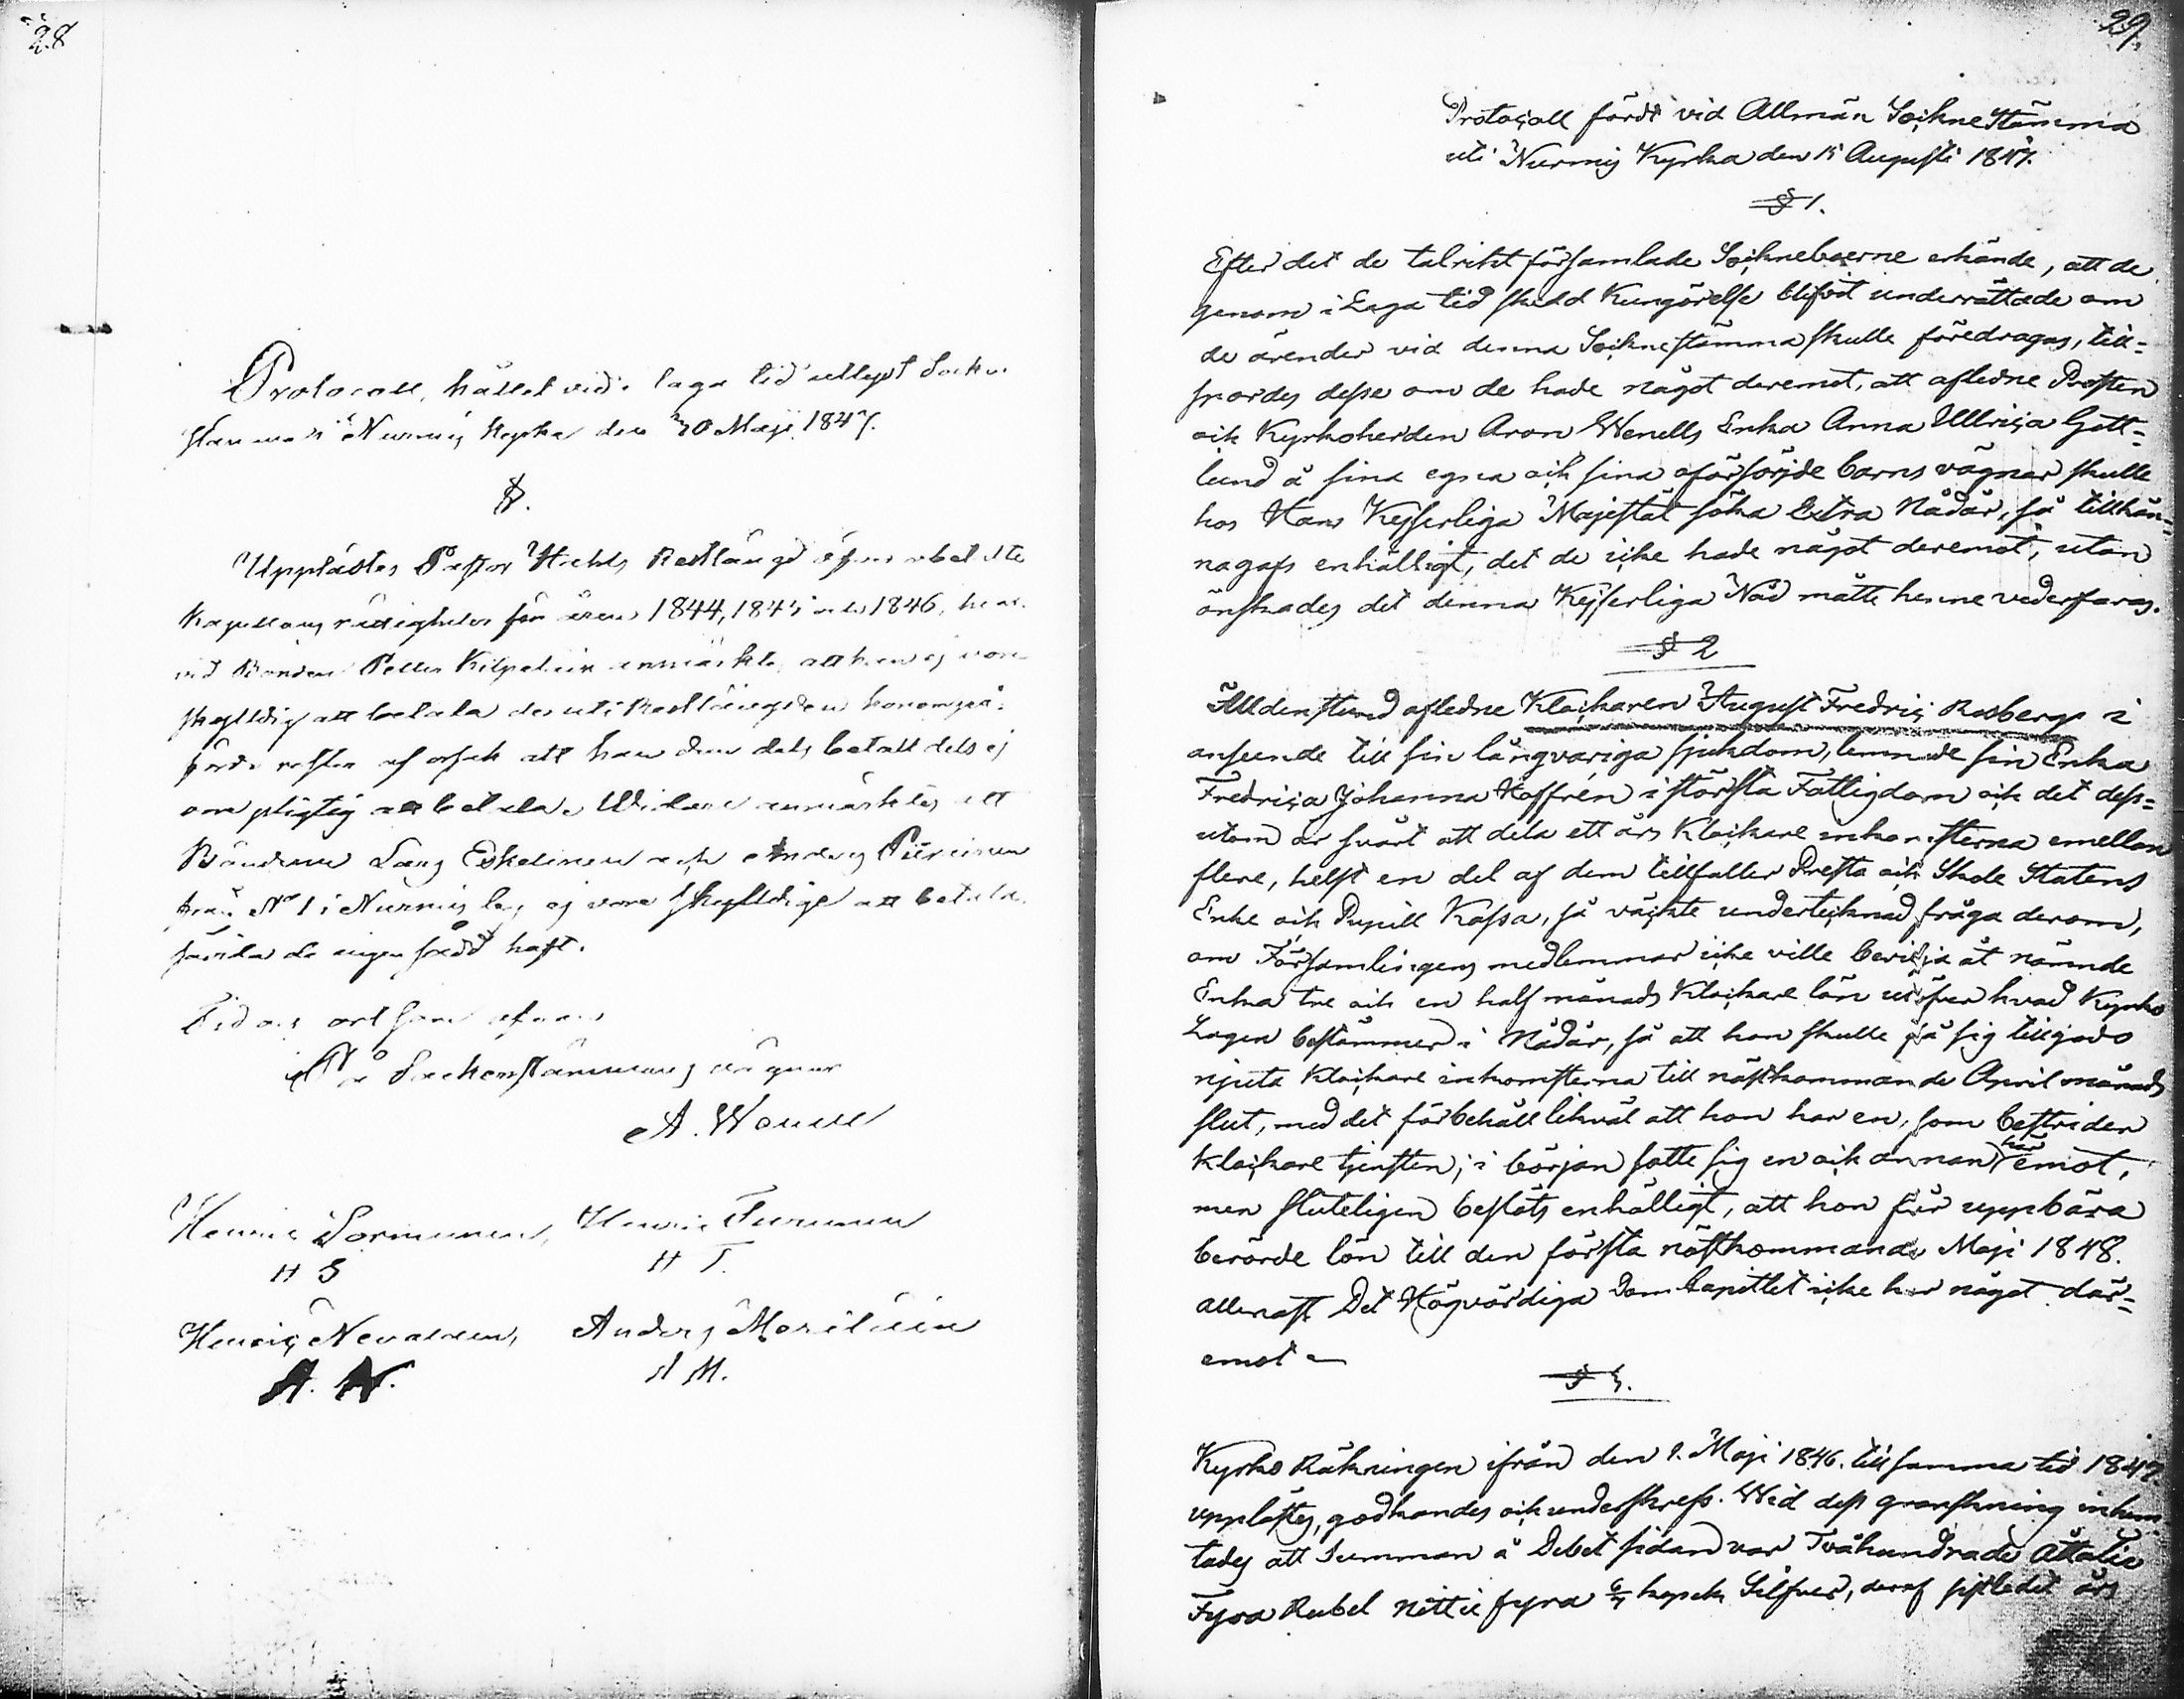 28
Protocoll, hållet vid i laga tid utlyst Sockne
stämma i Nurmis Kyrka den 30 Maji 1847.
§.
Upplästes Pastor Restlängd öfver obetalte
Kapellans rättigheter för åren 1844, 1845 och 1846, hvar
vid Bonden Petter Kilpeläin anmärkte, att han ej vore
skylldig att betala den uti Restlängden honom på-
förde resten af orsak att han den dels betalt dels ej
om pligtig att betala. Widare anmärktes att
Bönderne Lars Eskelinen och Anders Piirainen
från No 1 i Nurmis by ej vore skylldige att betala
såvida de ingen sådd haft.
Tid och ort som ofvan
På Sockenstämmans vägnar
A. Wenell
Henric Sormunen, Henric Turunen
H S H T.
Henric Nevalain, Anders Meriläin
H. N. A M.
29.
Protocoll fördt vid Allmän Sockne Stämma
uti Nurmis Kyrka den 15 Augusti 1847.
§ 1.
Efter det de talrikt församlade Sockneboerne erkände, att de
genom i Laga tid skedd Kungörelse blifvit underrättade om
de ärender vid denna Socknestämma skulle föredragas, till-
spordes desse om de hade något deremot, att afledne Prosten
och Kyrkoherden Aron Wenells Enka Anna Ullrica Gott-
lund å sina egna och sina oförsörjde barns vägnar skulle
hos Hans Kejserliga Majestät söka Extra Nådår, så tillkän-
nagafs enhälligt, det de icke hade något deremot, utan
önskades det denna Kejserliga Nåd måtte henne vederfaras.
§ 2
Alldenstund afledne Klockaren August Fredric Rosberg i
anseende till sin långvariga sjukdom, lemnade sin Enka
Fredrica Johanna Hoffrén i största Fattigdom och det dess-
utom är svårt att dela ett års Klockare inkomsterna emellan
flere, helst en del af dem tillfaller Presta och Skole Statens
Enke och Pupill Kassa, så väckte undertecknad fråga derom,
om Församlingens medlemmar icke ville bevilja åt nämnde
Enka tre och en half månads Klockare lön utöfver hvad Kyrko
Lagen bestämmer i Nådår, så att hon skulle få sig tillgodo
njuta Klockare inkomsterna till nästkommande April månads
slut, med det förbehåll likväl att hon har en, som bestrider
klockare tjensten; i början satte sig en och annan här emot,
men sluteligen beslöts enhälligt, att hon får uppbära
berörde lön till den första nästkommande Maji 1848.
allenast Det Högvördiga Dom Capitlet icke har något där-
emot
§ 3.
Kyrko Räkningen ifrån den 1. Maji 1846. till samma tid 1847.
upplästes, godkändes och underskrefs. Wid dess granskning inhem-
tades att Summan å Debet sidan var Tvåhundrade Åttatio
Fyra Rubel nittio fyra kopek Silfver, deraf sistledit års